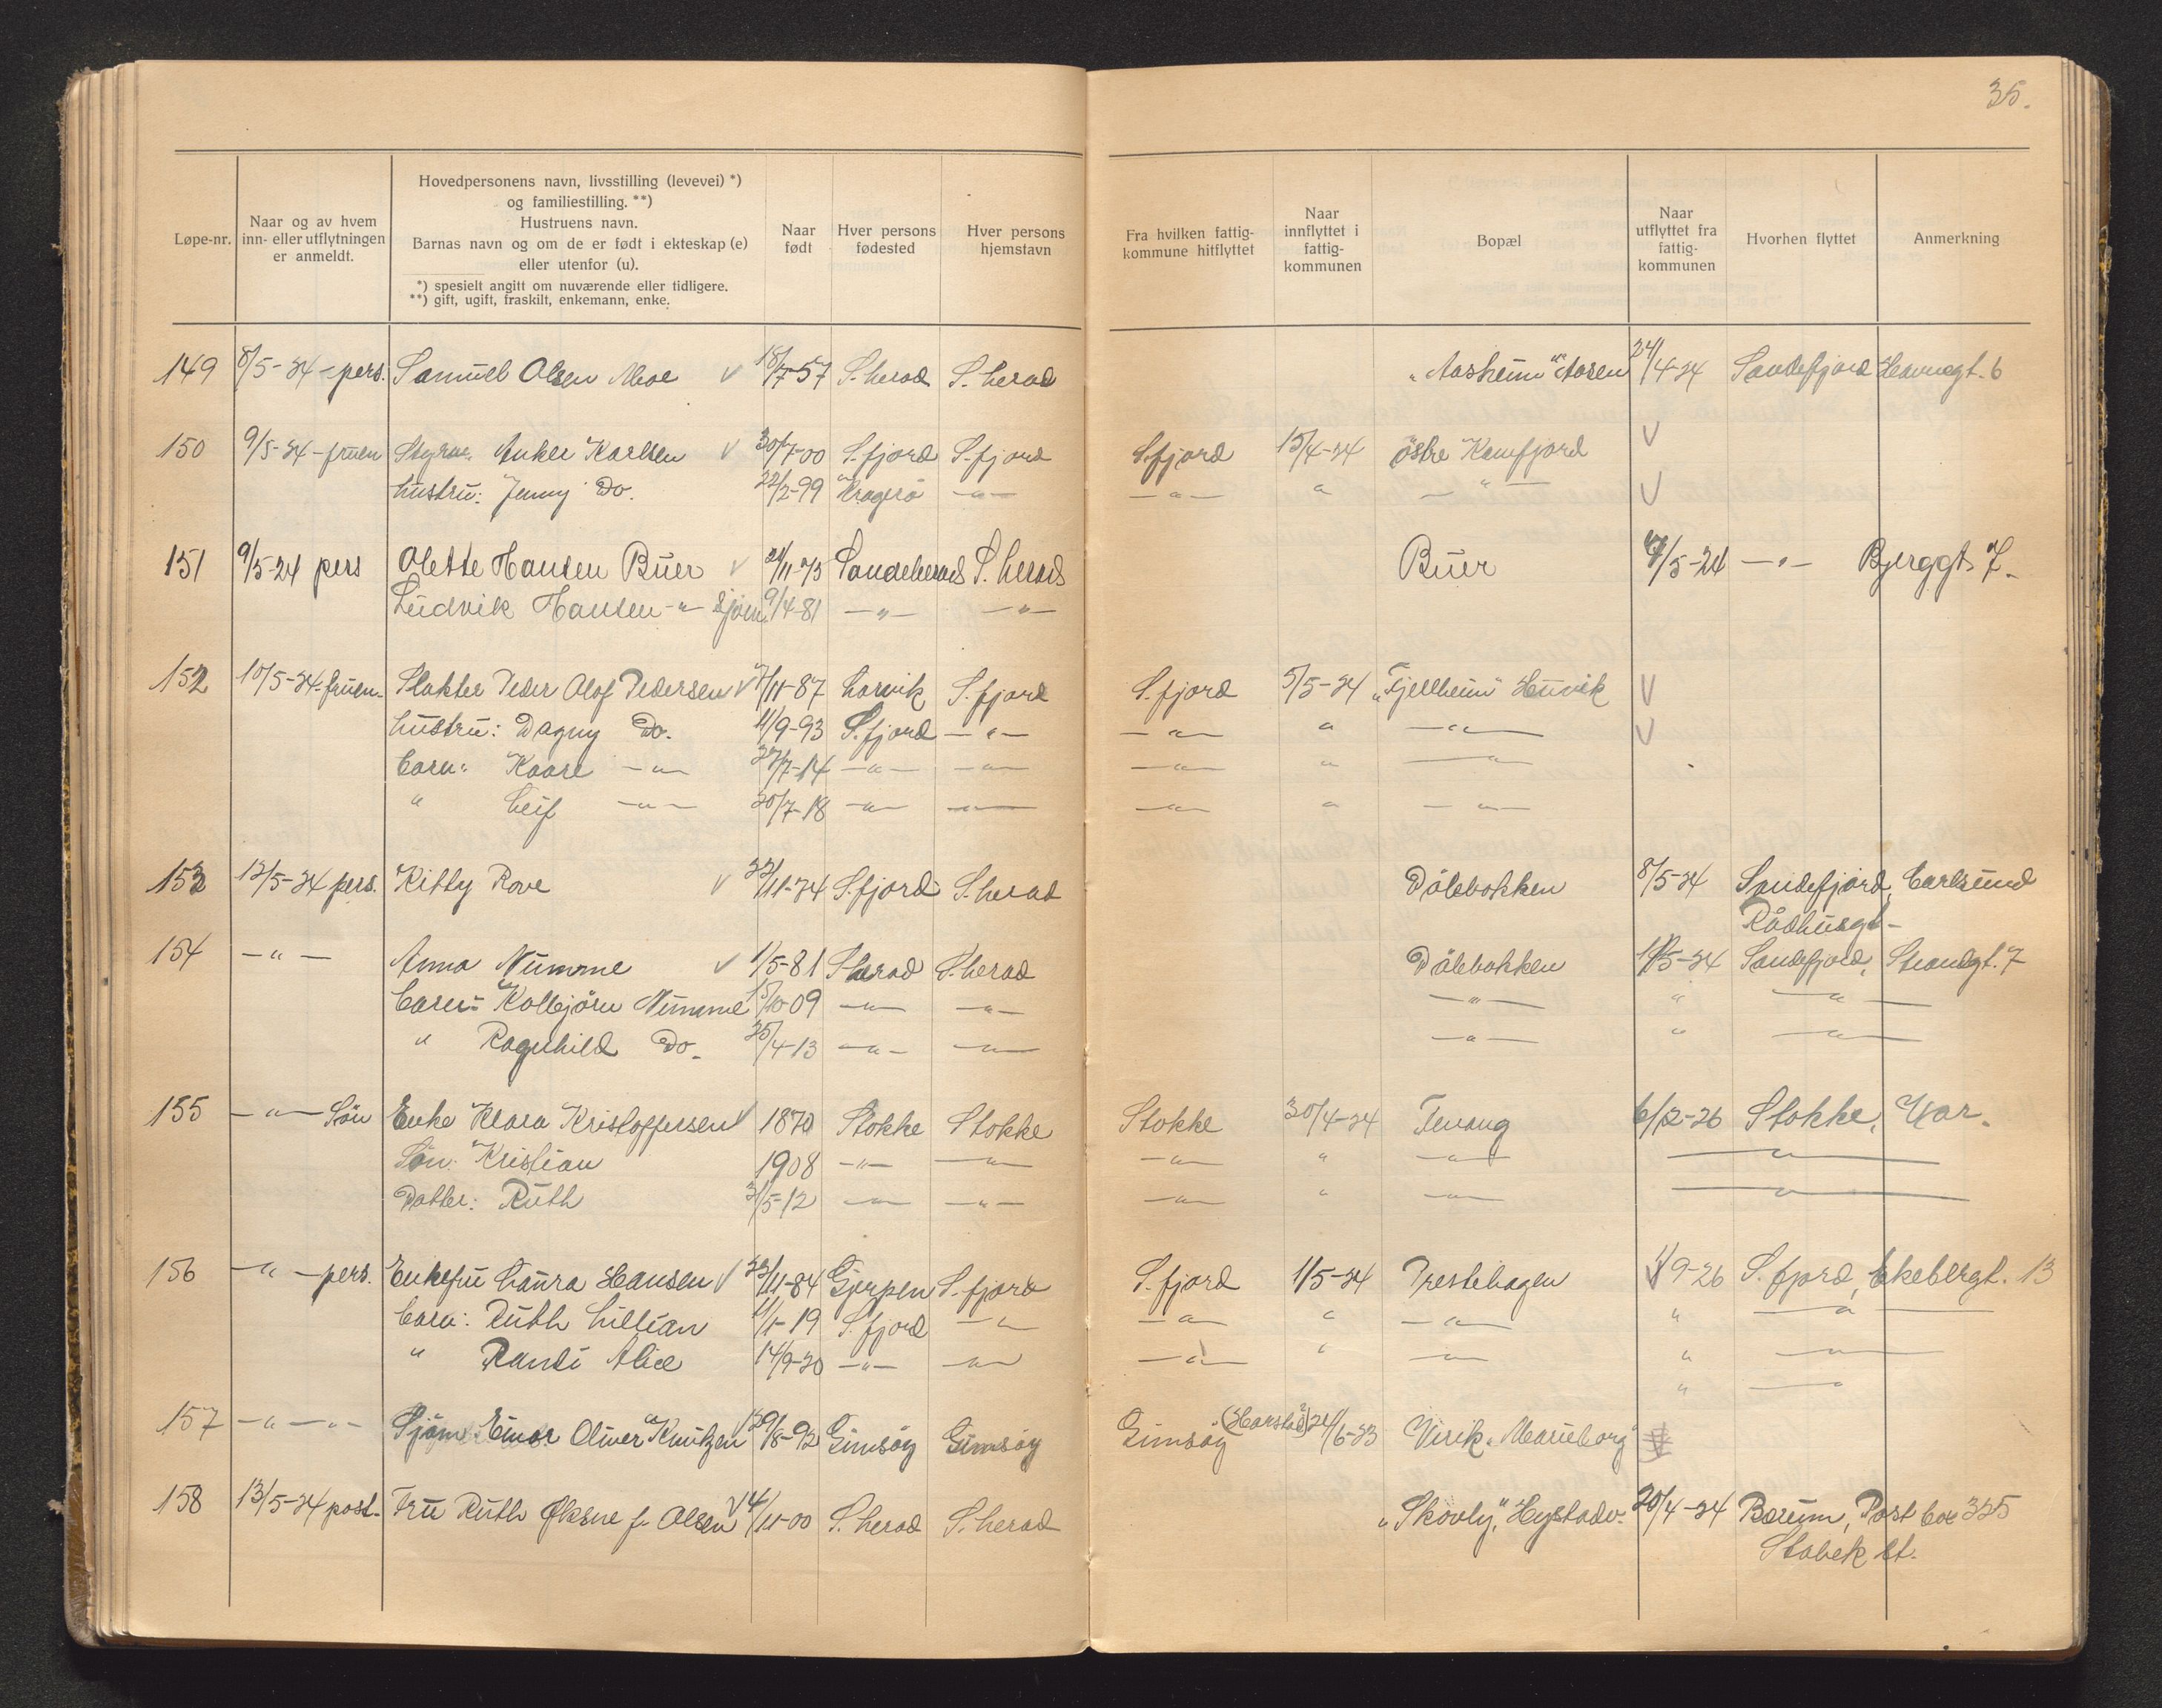 35.
Løpe-nr.
Naar og av hvem
inn- eller utflytningen
er anmeldt.
Hovedpersonens navn, livsstilling (levevei) *)
og familiestilling. **)
Hustruens navn.
Barnas navn og om de er født i ekteskap (e)
eller utenfor (u).
*) spesielt angitt om nuværende eller tidligere.
**) gift, ugift, fraskilt, enkemann, enke.
Naar
født
Hver persons
fødested
Hver persons
hjemstavn
Fra hvilken fattig-
kommune hitflyttet
Naar
innflyttet i
fattig-
kommunen
Bopæl
Naar
utflyttet fra
fattig-
kommunen
Hvorhen flyttet
Anmerkning
149 8/5-24 - pers. Samuel Olsen Moe √ 18/7-57 S. herad S. herad "Aasheim" Aasen 24/4-24 Sandefjord Havnegt. 6
150 9/5-24 - fruen Styrm. Anker Karlsen √ 30/7-00 S. fjord S. fjord S. fjord 15/4-24 østre Kamfjord √
hustru: Jenny Do. 22/2-99 Kragerø -"- -"- " -"- √
151 9/5-24 pers Olette Hansen Buer √ 21/11-75 Sandeherad S. herad Buer 7/5-24 -"- Bjerggt. 7.
Ludvik Hansen -"- Sjøm. 9/4-81 -"- -"-
152 10/5-24 - fruen - Slakter Peder Olof Pedersen √ 7/11-87 Larvik S. fjord S. fjord 5/5-24 "Fjellheim" Huvik √
hustru: Dagny Do. 11/9-93 S. fjord -"- -"- " -"- √
barn: Kaare -"- 27/7-14 -"- -"- -"- " -"-
" Leif -"- 20/7-18 -"- -"- -"- " -"-
153 12/5-24 pers. Kitty Rove √ 22/11-74 S. fjord S. herad Dølebakken 8/5-24 Sandefjord, Carlsund
Rådhusgt-
154 -"- Anna Numme √ 1/5-81 S herad S. herad Dølebakken 1/5-24 Sandefjord, Strandgt. 7
barn: Kolbjørn Numme 15/10-09 -"- -"- -"- " -"-
" Ragnhild Do. 25/4-13 -"- -"- -"- " -"-
155 -"- Søn Enke Klara Kristoffersen √ 1870 Stokke Stokke Stokke 30/4-24 Fevang 6/12-26 Stokke, Var.
Søn: Kristian 1908 -"- -"- -"- " -"- -"-
Datter: Ruth 31/5-12 -"- -"- -"- " -"- -"-
156 -"- pers. Enkefru Laura Hansen √ 22/11-84 Gjerpen S. fjord S. fjord 1/5-24 Prestehagen 1/9-26 S. fjord, Ekebergt. 13
barn: Ruth Lillian 11/1-19 S. fjord -"- -"- " -"- " -"-
" Randi Alice 14/9-20 -"- -"- -"- " -"- " -"-
" -"-
157 -"- -"- Sjøm. Einar Oliver Knutzen 29/8-92 Gimsøy Gimsøy Gimsøy (Harstad?) 24/6-23 Virik "Marieborg"
158 13/5-24 post. Fru Ruth Øksne f. Olsen √ 4/11-00 S. herad S. herad "Skovly", Hystadv. 20/4-24 Bærum, Post box 325
Stabek st.